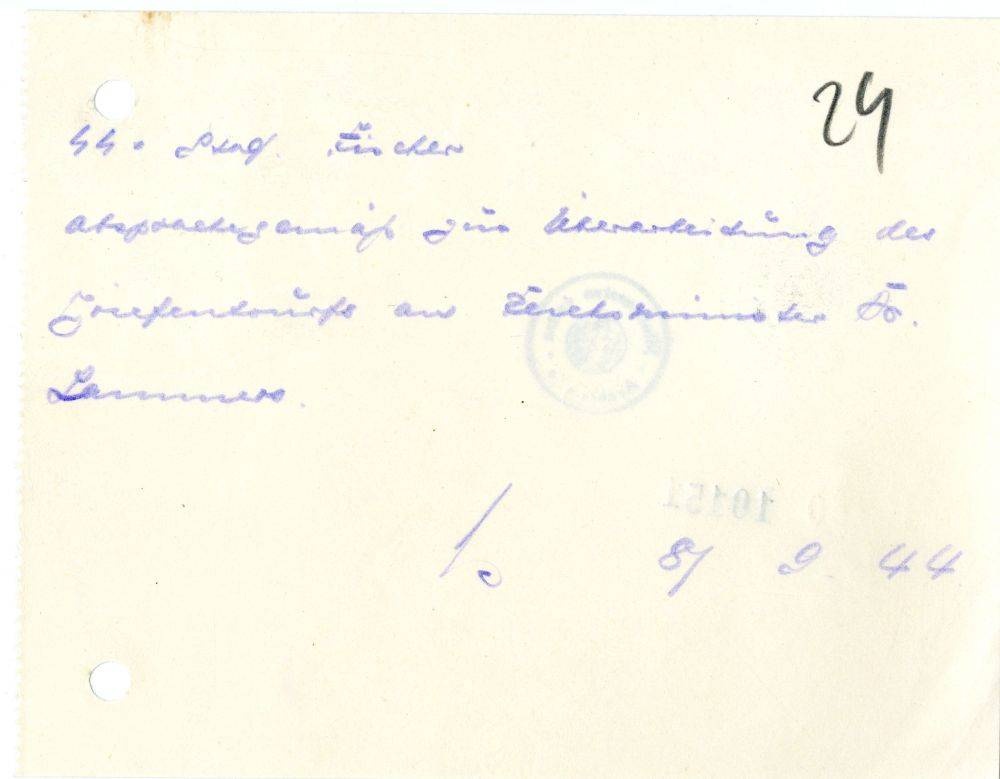 24
SS-Stubaf. Fischer
absprachegemäß zur Überarbeitung des
Briefentwurfs an Reichsminister Dr.
Lammers.
8/ 9. 44
10151